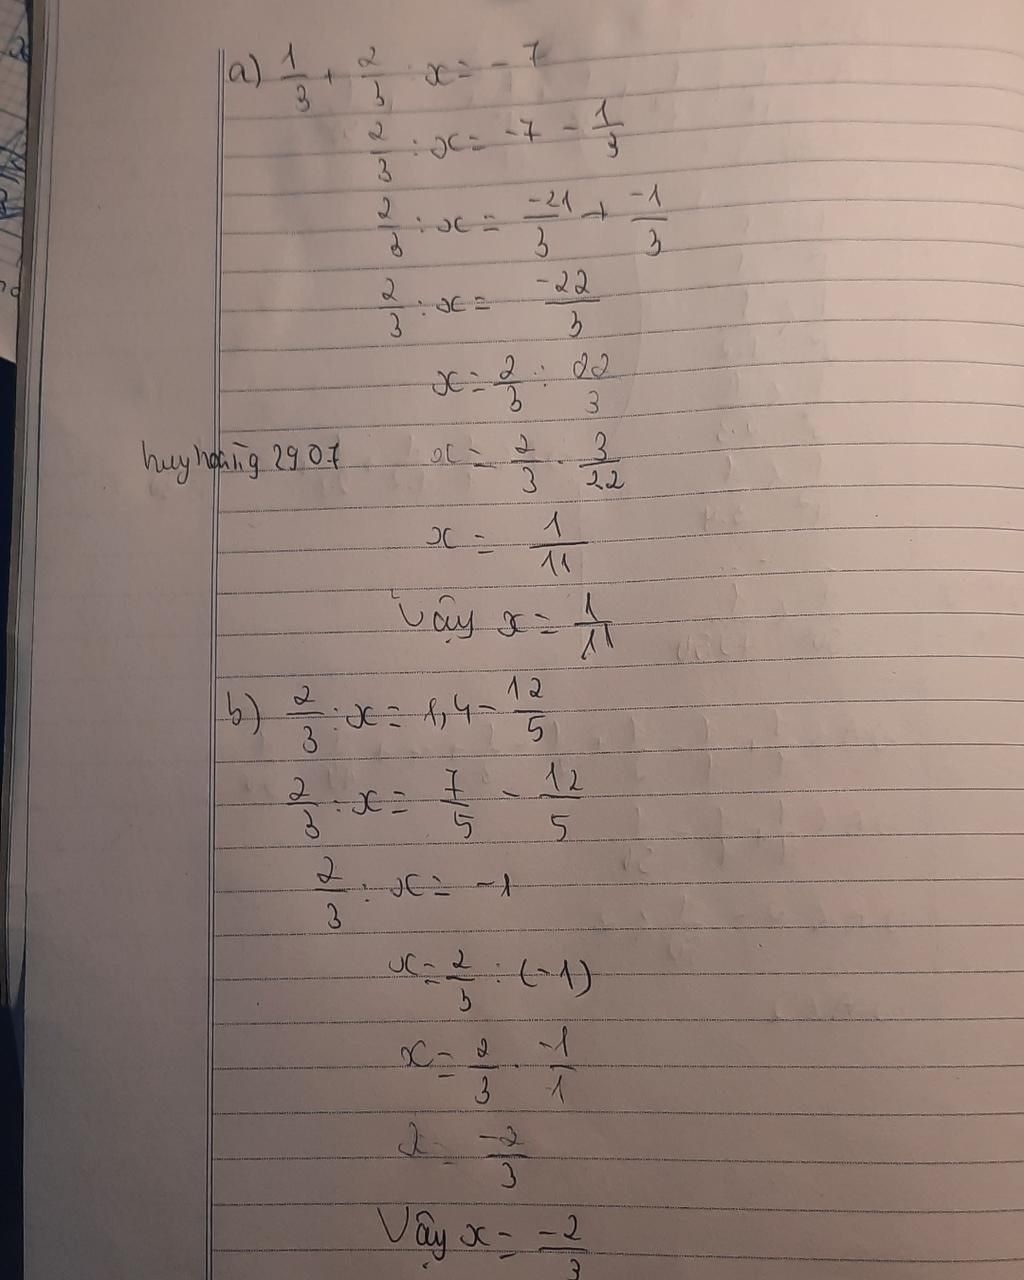 a) 1/3 + 2/3 : x = -7
2/3 : x = -7 - 1/3
2/3 : x = -21/3 + -1/3
2/3 : x = -22/3
x = 2/3 : 22/3
huyhoang2907
x = 2/3 . 3/22
x = 1/11
Vậy x = 1/11
b) 2/3 : x = 1,4 - 12/5
2/3 : x = 7/5 - 12/5
2/3 : x = -1
x = 2/3 : (-1)
x = 2/3 . -1/1
x = -2/3
Vậy x = -2/3